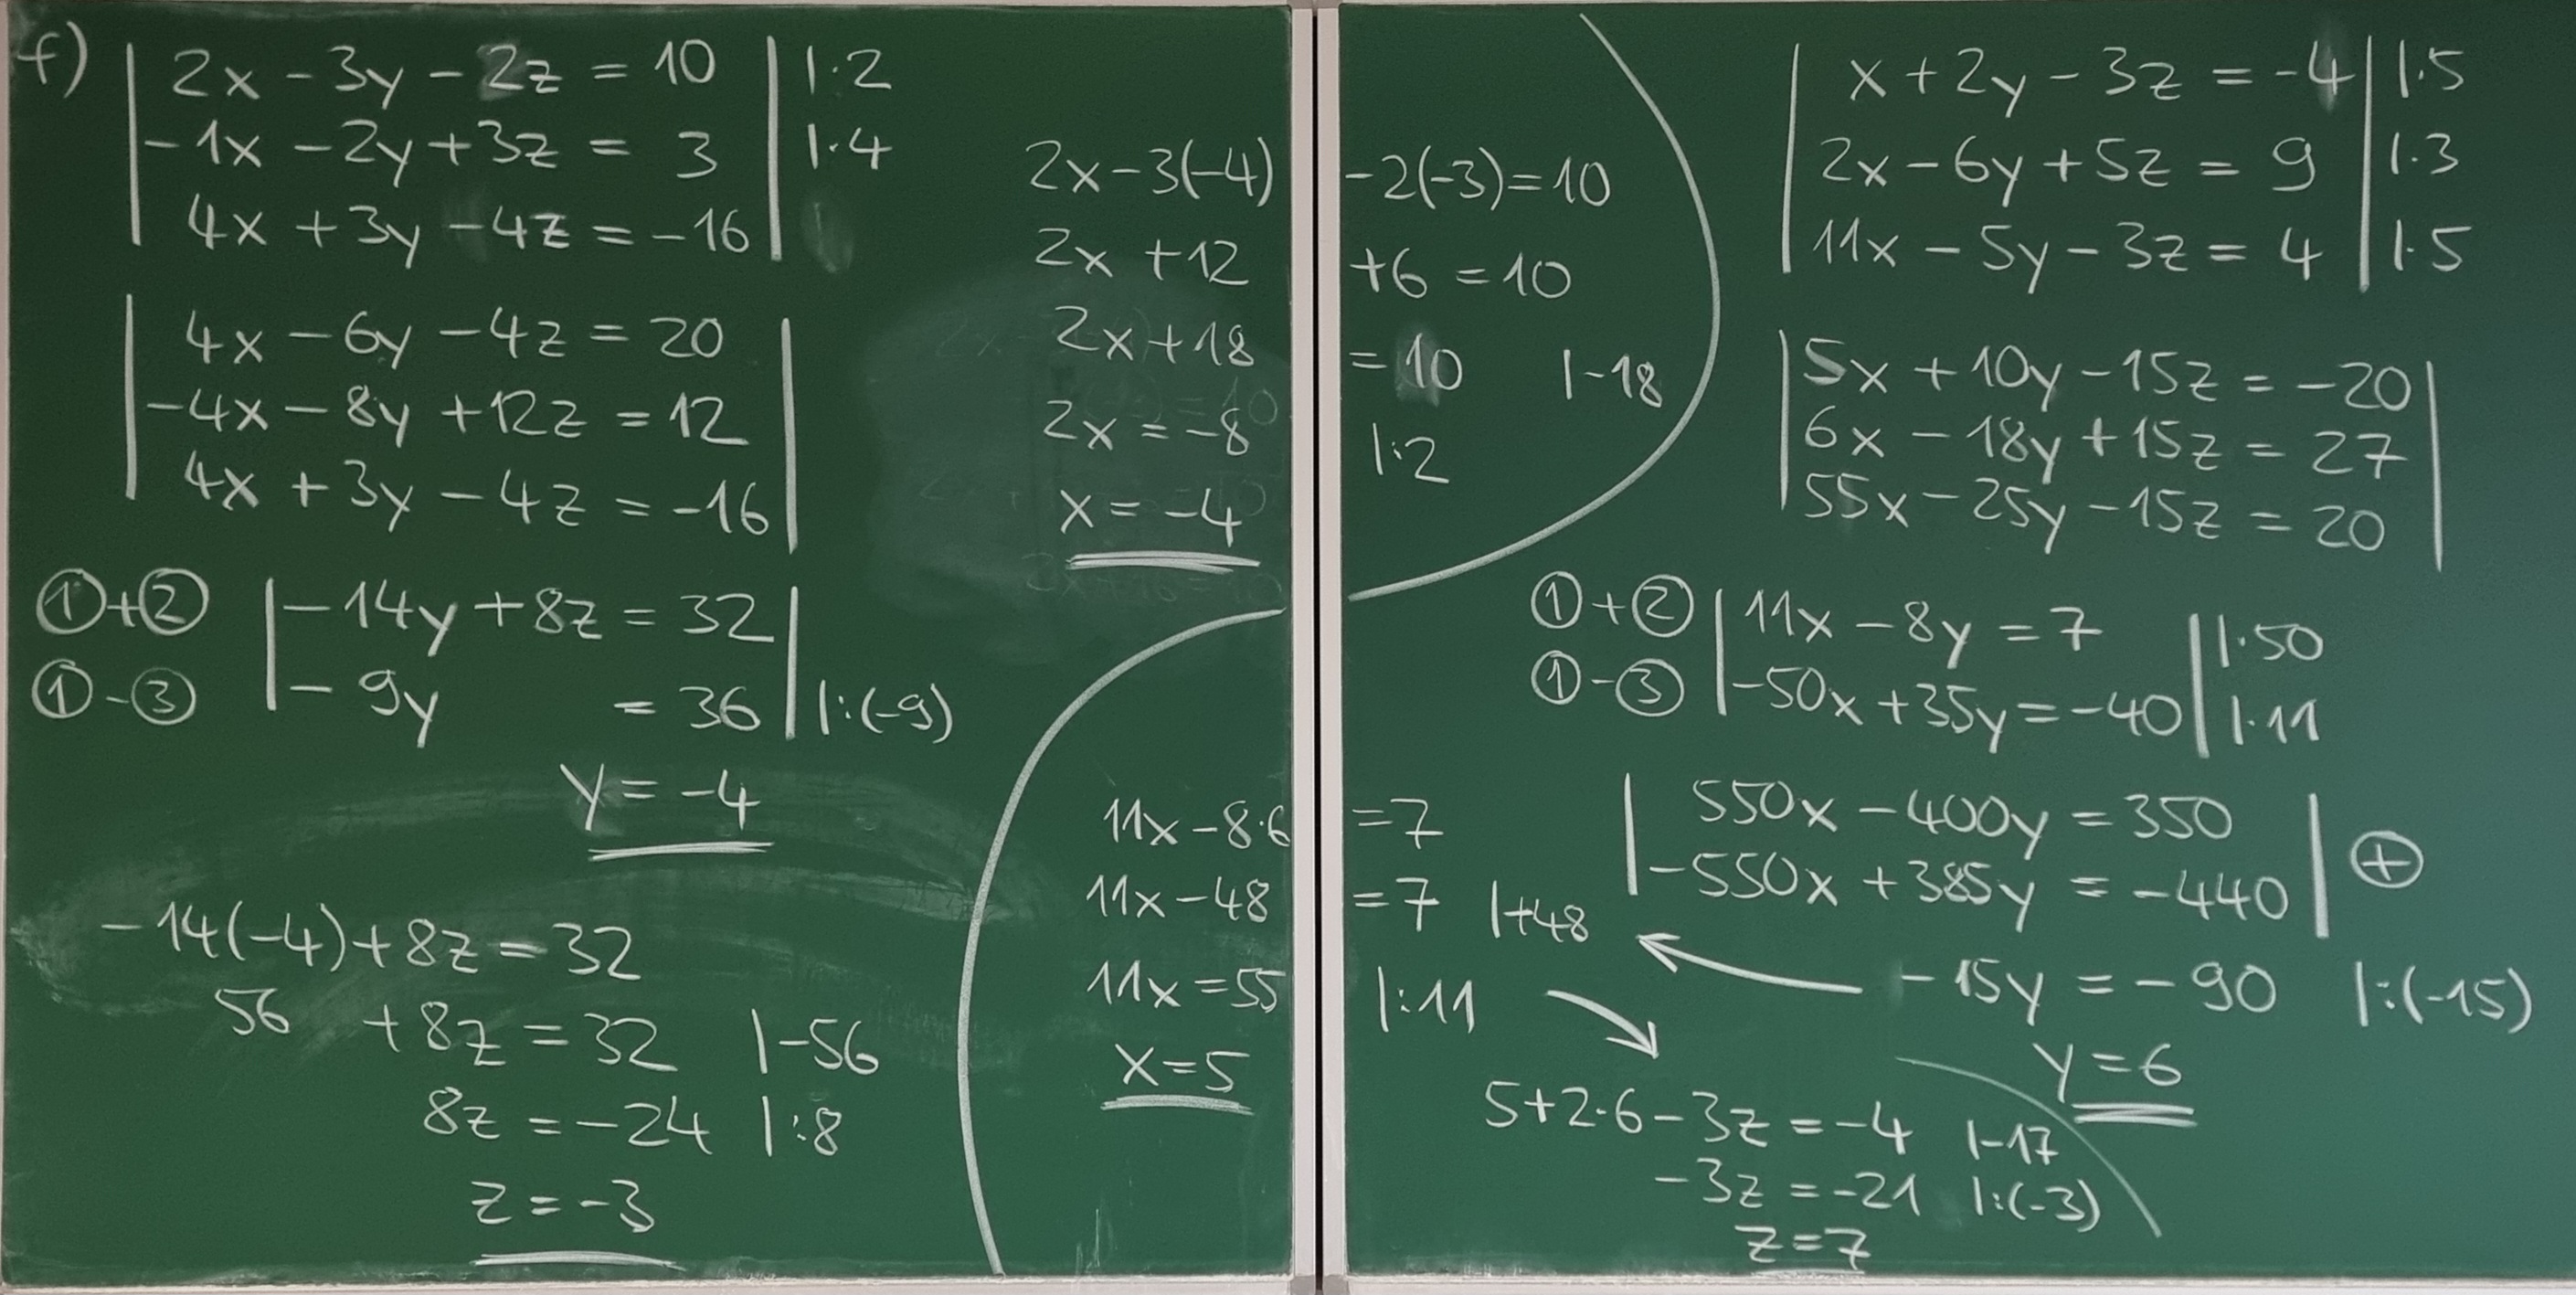 f) | 2x - 3y - 2z = 10 | |·2
| -1x - 2y + 3z = 3 | |·4
| 4x + 3y - 4z = -16 |
| 4x - 6y - 4z = 20 |
| -4x - 8y + 12z = 12 |
| 4x + 3y - 4z = -16 |
①+② | -14y + 8z = 32 |
①-③ | -9y = 36 | |:(-9)
y = -4
-14(-4) + 8z = 32
56 + 8z = 32 |-56
8z = -24 |:8
z = -3
2x - 3(-4) - 2(-3) = 10
2x + 12 + 6 = 10
2x + 18 = 10 |-18
2x = -8 |:2
x = -4
| x + 2y - 3z = -4 | |·5
| 2x - 6y + 5z = 9 | |·3
| 11x - 5y - 3z = 4 | |·5
| 5x + 10y - 15z = -20 |
| 6x - 18y + 15z = 27 |
| 55x - 25y - 15z = 20 |
①+② | 11x - 8y = 7 | |·50
①-③ | -50x + 35y = -40 | |·11
| 550x - 400y = 350 |
| -550x + 385y = -440 | ⊕
-15y = -90 |:(-15)
y = 6
11x - 8·6 = 7
11x - 48 = 7 |+48
11x = 55 |:11
x = 5
5 + 2·6 - 3z = -4 |-17
-3z = -21 |:(-3)
z = 7